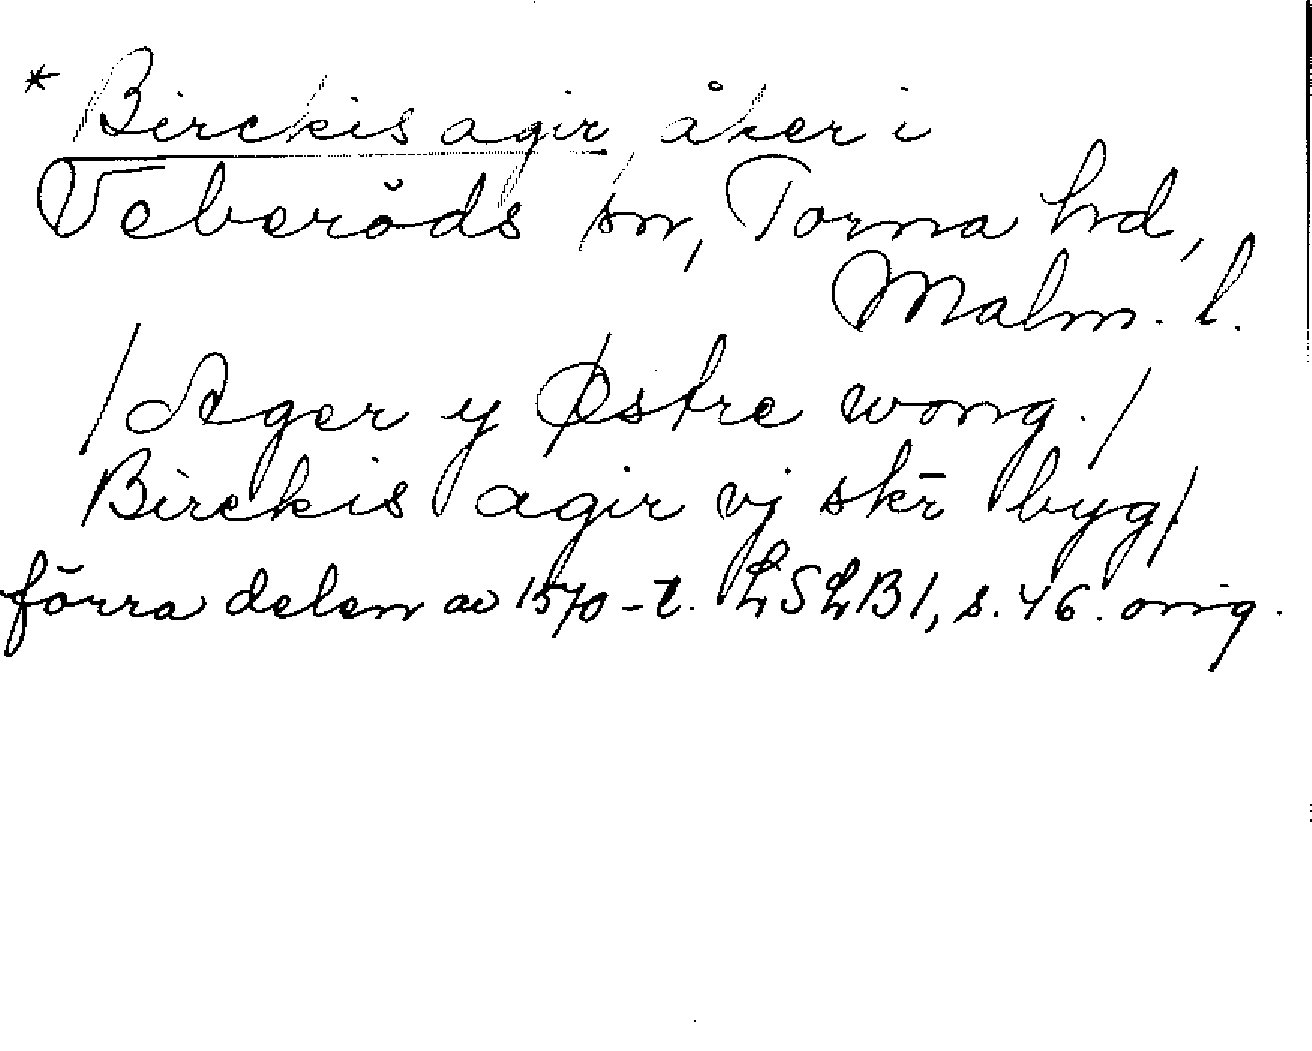 * Birckis agir åker i
Veberöds sn, Torna hd,
Malm. l.
/Ager y Østre wong./
Birckis agir vj skr̄ byg/
förra delen av 1570-t. LSLB1, s. 46. orig.